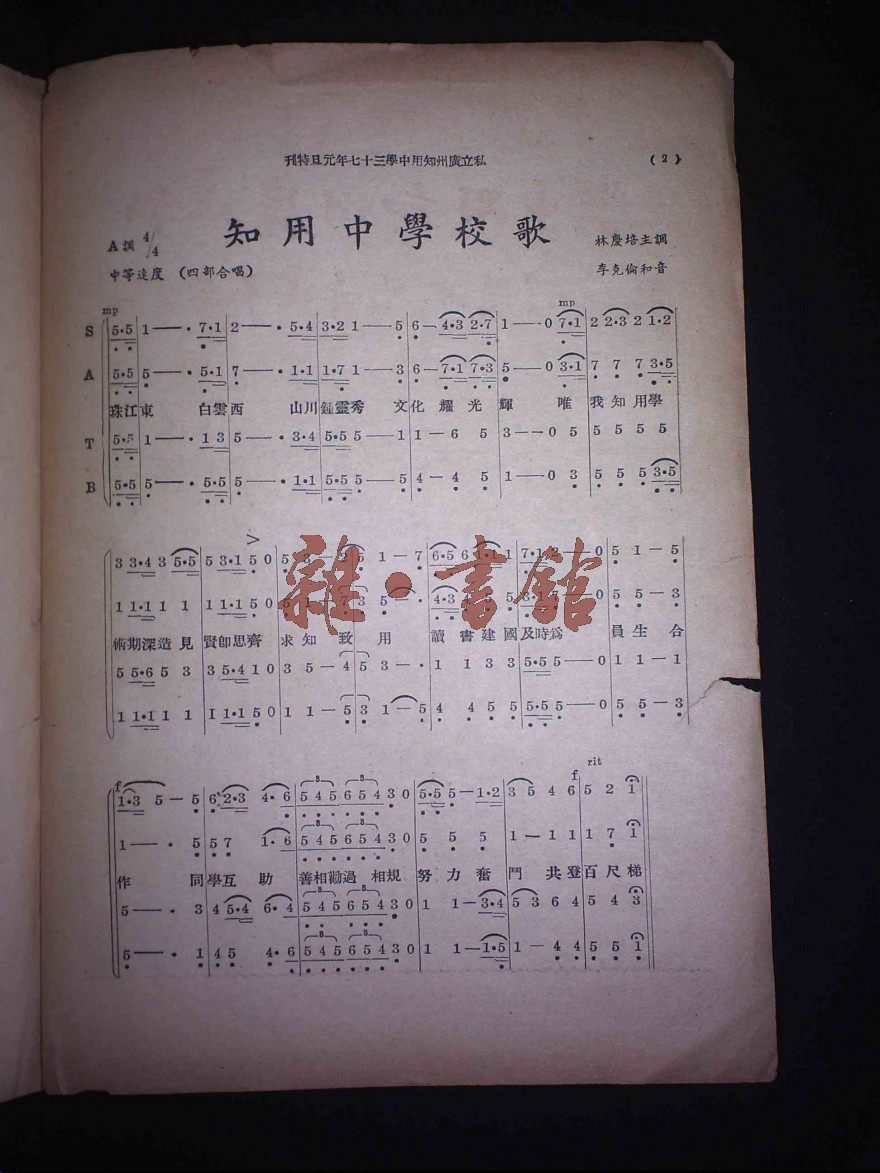 私立廣州知用中學三十七年元旦特刊 (2)
知用中學校歌
A調 4/4 林慶培主調
中等速度 (四部合唱) 李克倫和音
mp mp
S 5·5 1——· 7·1 2——· 5·4 3·2 1—5 6—4·3 2·7 1——0 7·1 2 2·3 2 1·2
A 5·5 5——· 5·1 7——· 1·1 1·7 1—3 6—7·1 7·3 5——0 3·1 7 7 7 3·5
珠江東 白雲西 山川鍾靈秀 文化耀光輝 唯我知用學
T 5·5 1——· 1 3 5——· 3·4 5·5 5—1 1—6 5 3——0 5 5 5 5 5
B 5·5 5——· 5·5 5——· 1·1 5·5 5—5 4—4 5 1——0 3 5 5 5 3·5
3 3·4 3 5·5 5 3·1 5 0 5 3—2 5 1—7 6·5 6 1·1 1 7·1 2——0 5 1—5
1 1·1 1 1 1 1·1 5 0 5 1—7 3 5—· 4·3 5 3·1 7——0 5 5—3
術期深造見賢卽思齊 求知致用 讀書建國及時爲 員生合
5 5·6 5 3 3 5·4 1 0 3 5—4 5 3—· 1 1 3 3 5·5 5——0 1 1—1
1 1·1 1 1 1 1·1 5 0 1 1—5 3 1—5 4 4 5 5 5·5 5——0 5 5—3
f f rit
1·3 5—5 6 2·3 4·6 5 4 5 6 5 4 3 0 5·5 5—1·2 3 5 4 6 5 2 1
1——· 5 5 7 1·6 5 4 5 6 5 4 3 0 5 5 5 1—1 1 1 7 1
作 同學互助 善相勸過相規 努力奮鬥共登百尺梯
5——· 3 4 5·4 6·4 5 4 5 6 5 4 3 0 1 1—3·4 5 3 6 4 5 4 3
5——· 1 4 5 4·6 5 4 5 6 5 4 3 0 1 1—1·5 1—4 4 5 5 1
雜·書館